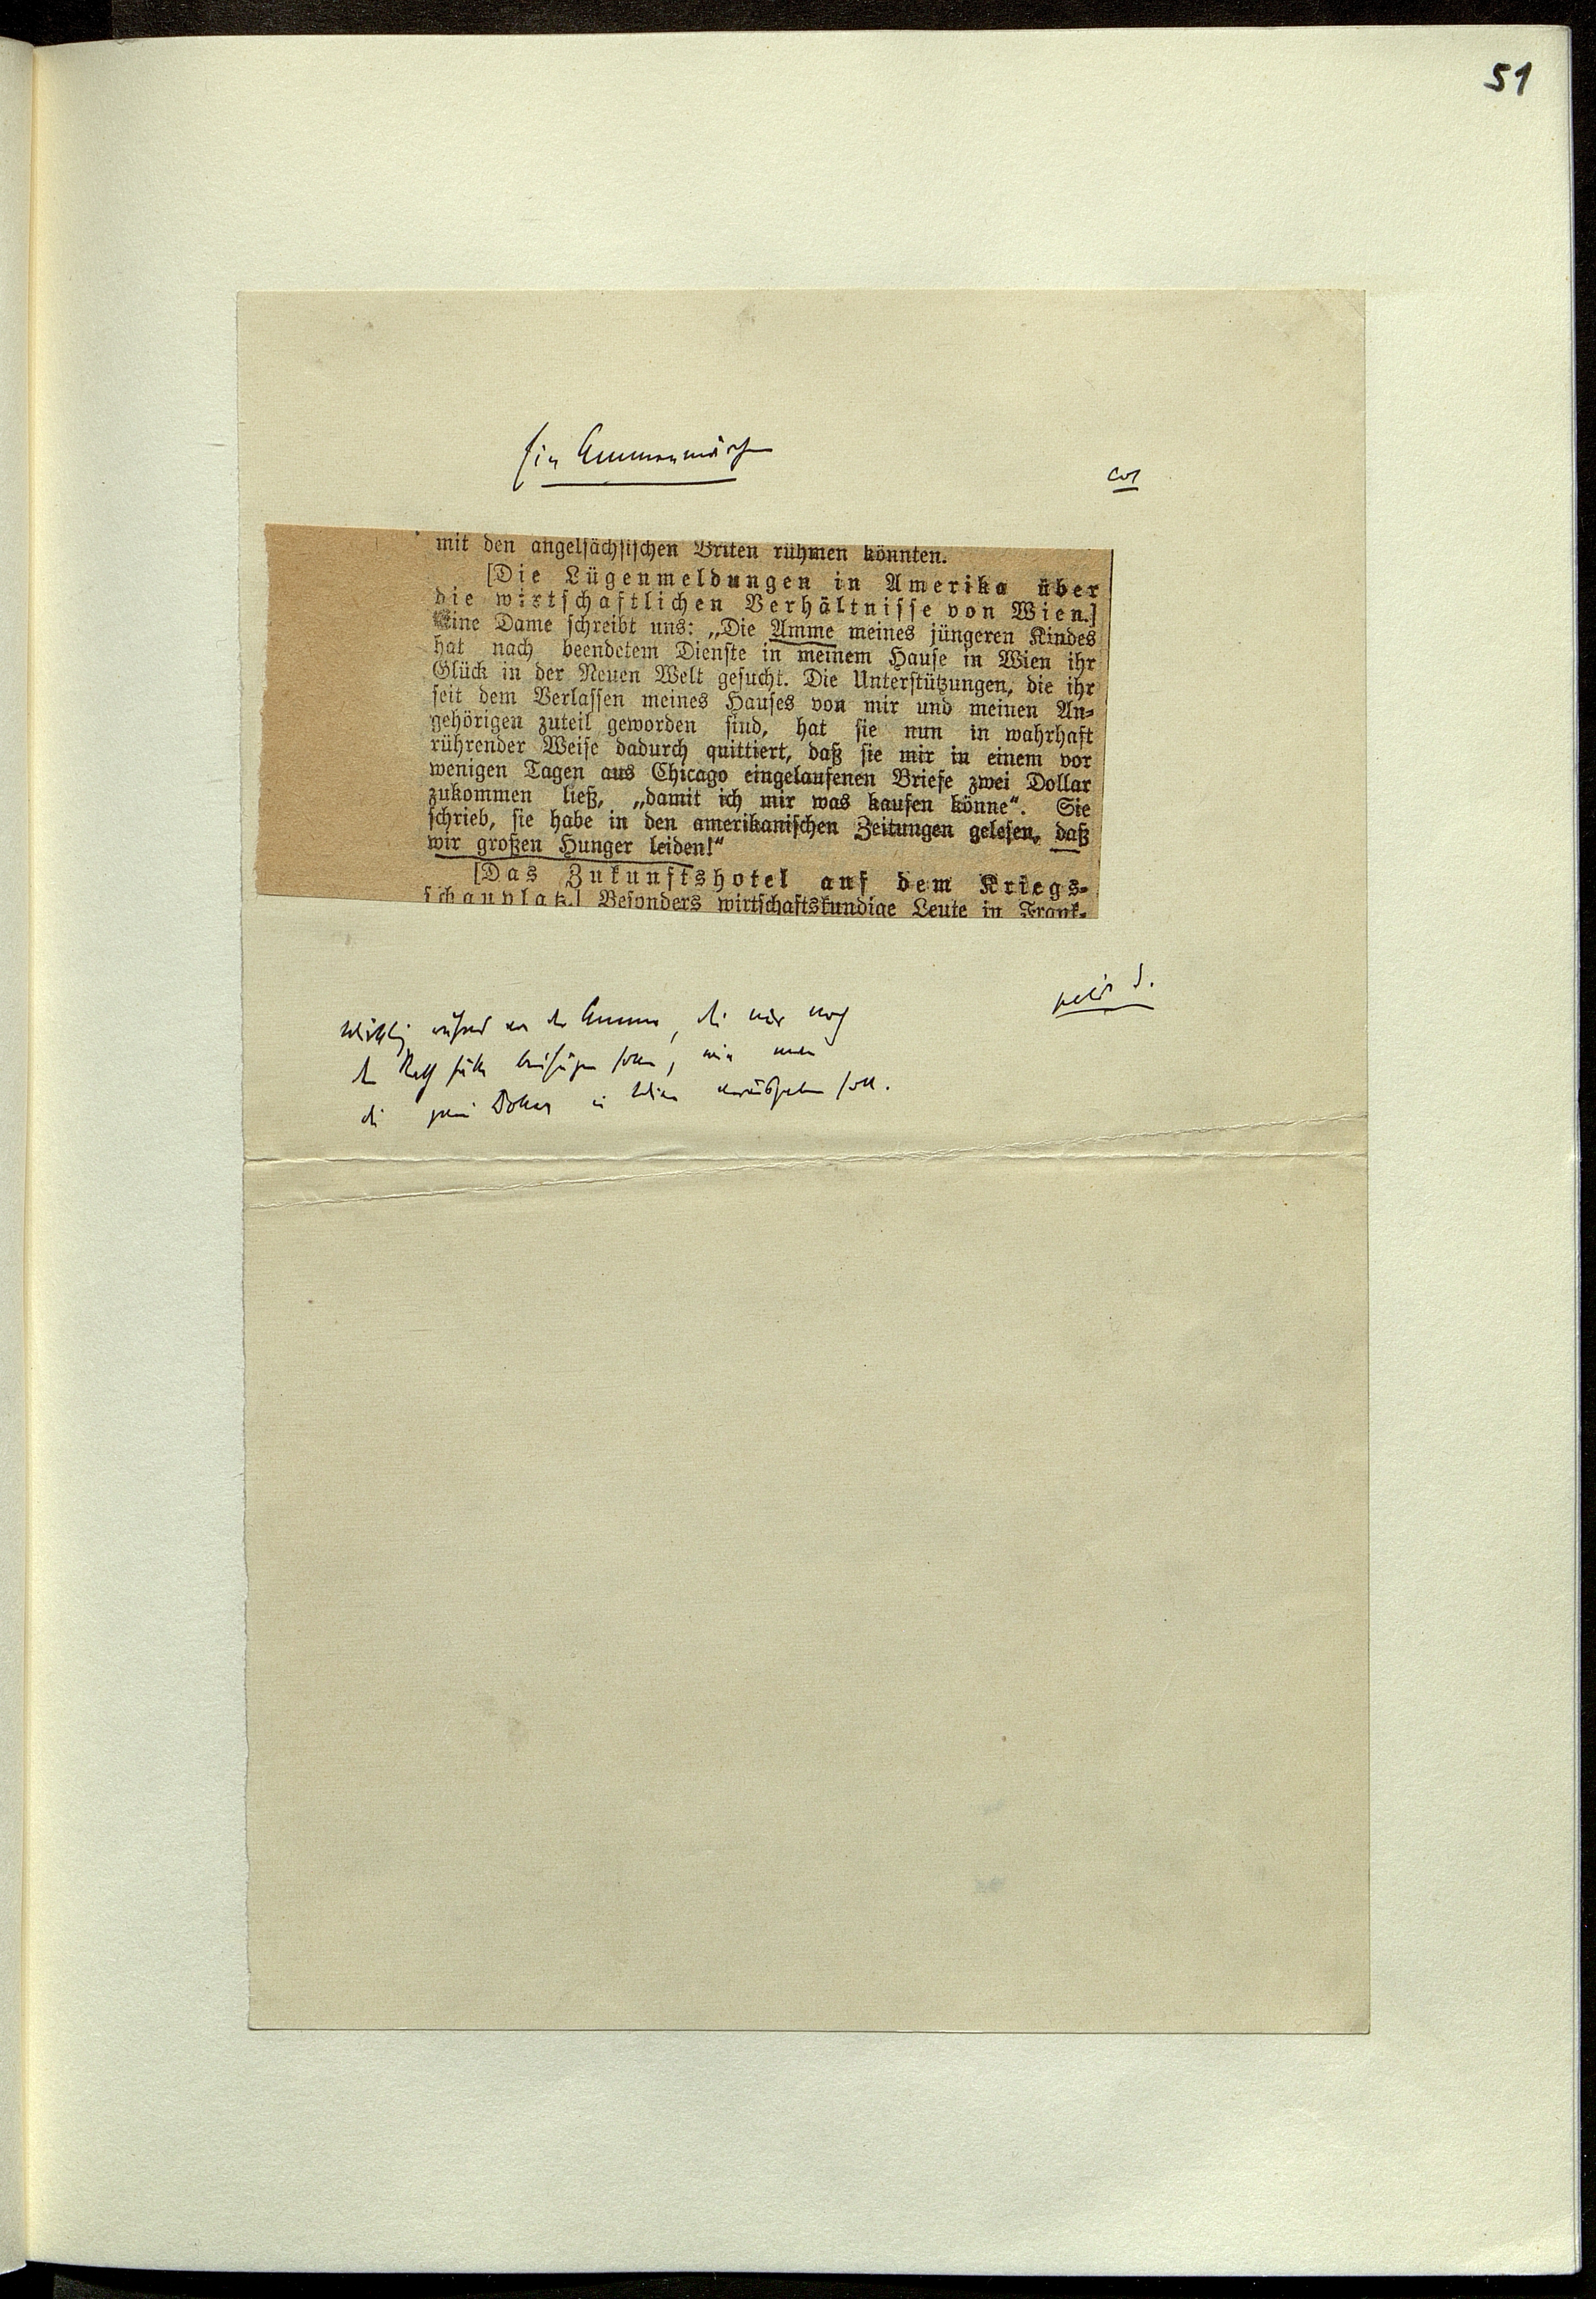 51
Ein Ammenmärchen
cor
mit den angelsächsischen Briten rühmen könnten.
[Die Lügenmeldungen in Amerika über
die wirtschaftlichen Verhältnisse von Wien.]
Eine Dame schreibt uns: „Die Amme meines jüngeren Kindes
hat nach beendetem Dienste in meinem Hause in Wien ihr
Glück in der Neuen Welt gesucht. Die Unterstützungen, die ihr
seit dem Verlassen meines Hauses von mir und meinen An-
gehörigen zuteil geworden sind, hat sie nun in wahrhaft
rührender Weise dadurch quittiert, daß sie mir in einem vor
wenigen Tagen aus Chicago eingelaufenen Briefe zwei Dollar
zukommen ließ, „damit ich mir was kaufen könne“. Sie
schrieb, sie habe in den amerikanischen Zeitungen gelesen, daß
wir großen Hunger leiden!“
[Das Zukunftshotel auf dem Kriegs-
schauplatz.] Besonders wirtschaftskundige Leute in Frank-
Wirklich rührend von der Amme, die nur noch
den Rath hätte beifügen sollen, wie man
die zwei Dollar in Wien ausgeben soll.